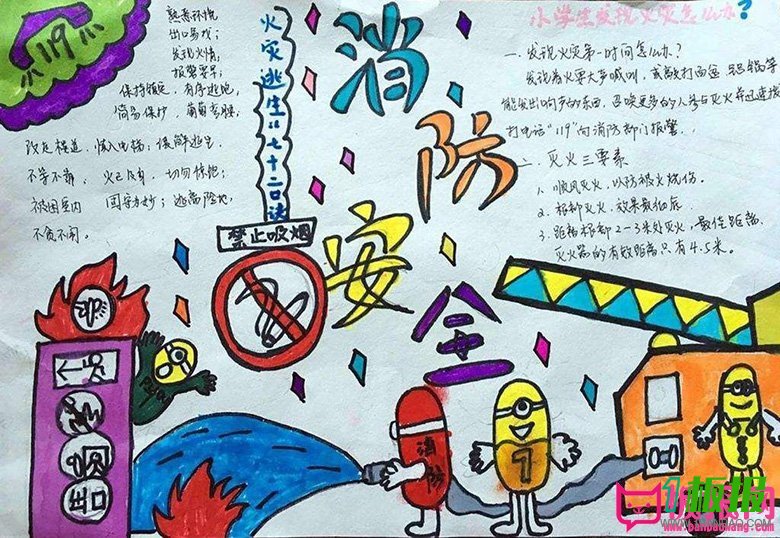 119
熟悉环境
出口易找；
发现火情，
报警要早；
保持镇定，有序逃跑；
简易保护，匍匐弯腰；
改走楼道，慎入电梯；缓解逃生
不等不靠，火已及身，切勿惊跑；
被困室内 固守为妙；速离险地
不贪不闹。
火灾逃生"七十二口诀
禁止吸烟
消防安全
小学生发现火灾怎么办？
一、发现火灾第一时间怎么办？
发现着火要大声喊叫，或敲打面盆
能发出响声的东西，召唤更多的人参与灭火并迅速拨
打电话"119"向消防部门报警。
二、灭火三要素
1. 顺风灭火，以防被火烧伤。
3. 距离 2-3米处灭火，最佳距离。
灭火器的有效距离只有4.5米。
出口
消防
1